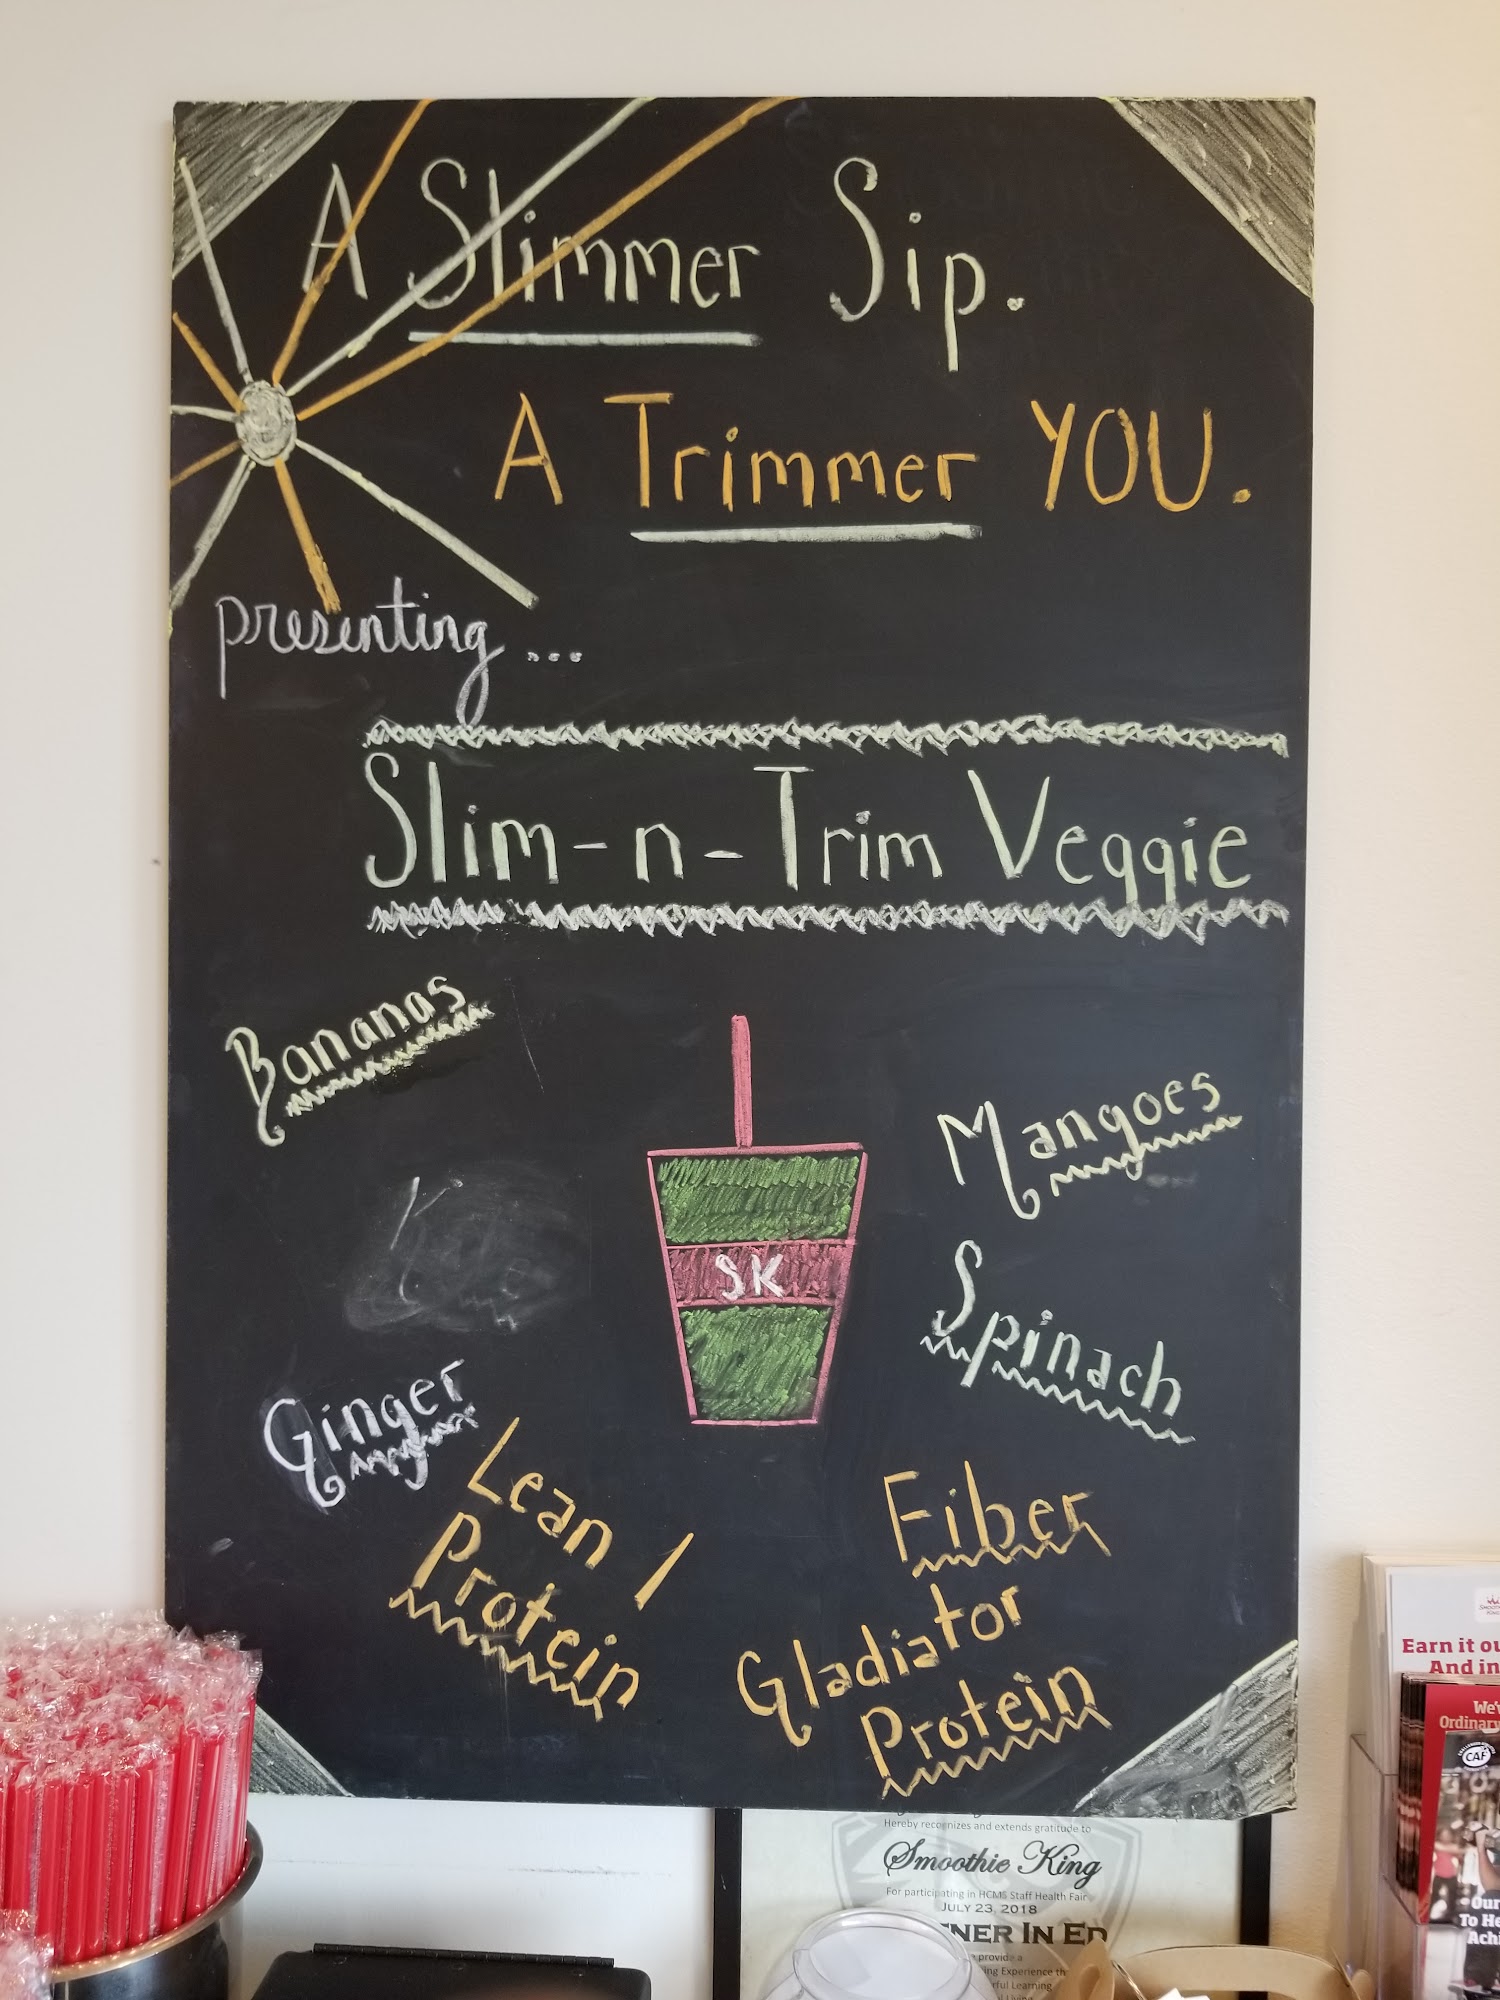 A Slimmer Sip.
A Trimmer YOU.
presenting...
Slim-n-Trim Veggie
Bananas
Mangoes
SK
Spinach
Ginger
Lean 1
Protein
Fiber
Gladiator
Protein
Hereby recognizes and extends gratitude to
Smoothie King
For participating in HCMS Staff Health Fair
JULY 23, 2018
NER IN ED
provide a
ing Experience th
ful Learning
Living
SMOOTHIE
KING
Earn it ou
And in
We'
Ordinary
CAF
Our
To He
Achi